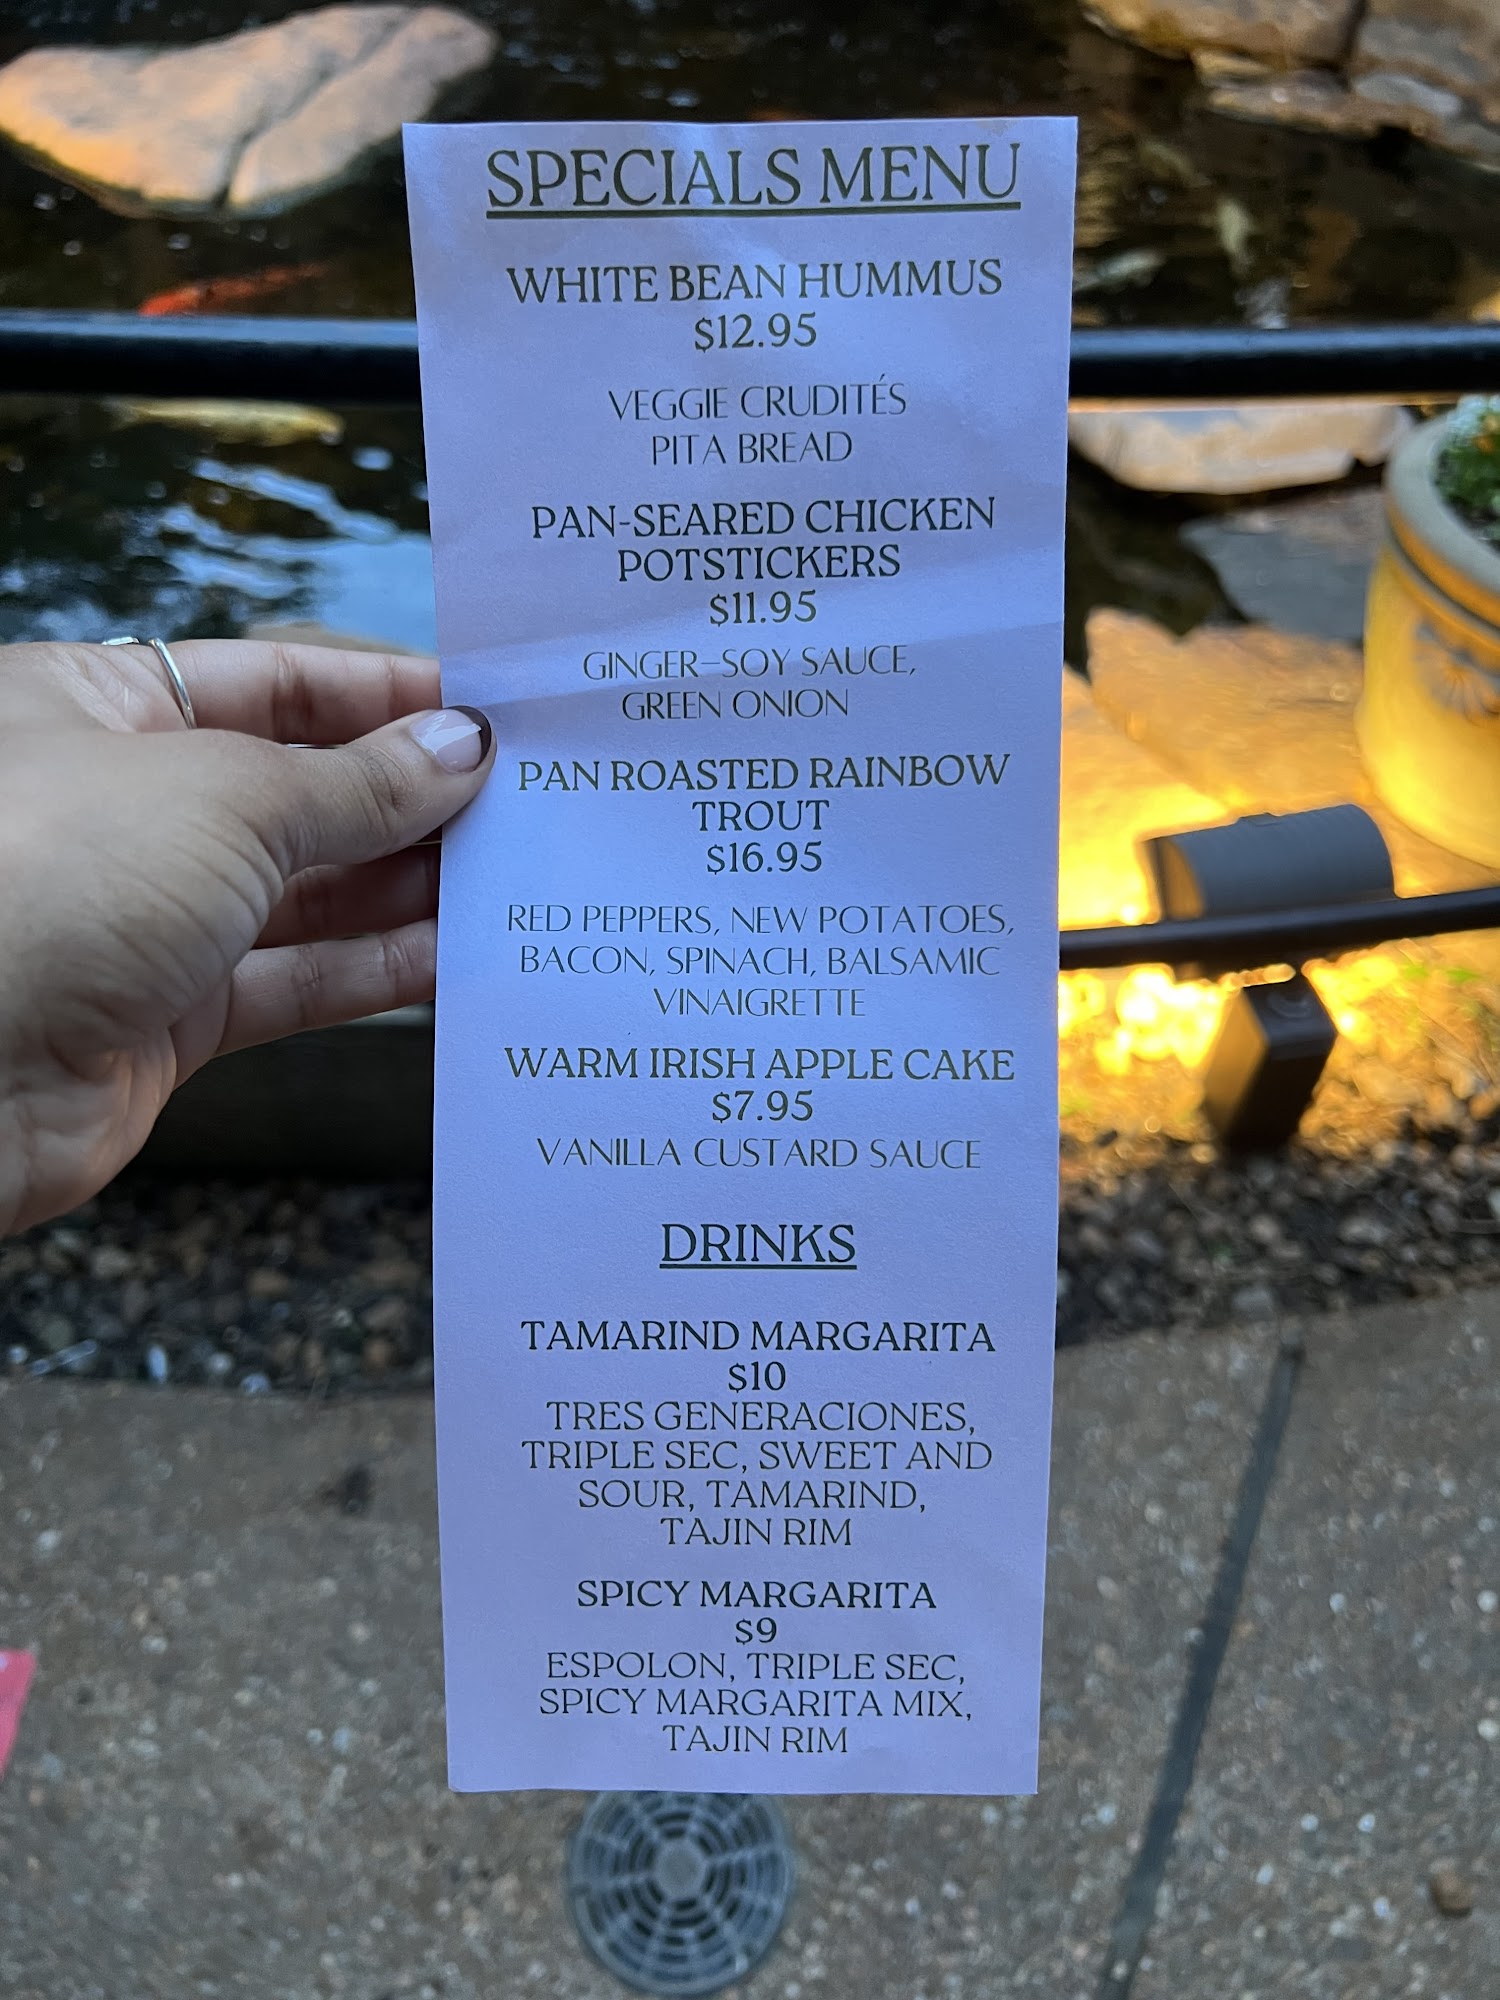 SPECIALS MENU
WHITE BEAN HUMMUS
$12.95
VEGGIE CRUDITÉS
PITA BREAD
PAN-SEARED CHICKEN
POTSTICKERS
$11.95
GINGER–SOY SAUCE,
GREEN ONION
PAN ROASTED RAINBOW
TROUT
$16.95
RED PEPPERS, NEW POTATOES,
BACON, SPINACH, BALSAMIC
VINAIGRETTE
WARM IRISH APPLE CAKE
$7.95
VANILLA CUSTARD SAUCE
DRINKS
TAMARIND MARGARITA
$10
TRES GENERACIONES,
TRIPLE SEC, SWEET AND
SOUR, TAMARIND,
TAJIN RIM
SPICY MARGARITA
$9
ESPOLON, TRIPLE SEC,
SPICY MARGARITA MIX,
TAJIN RIM